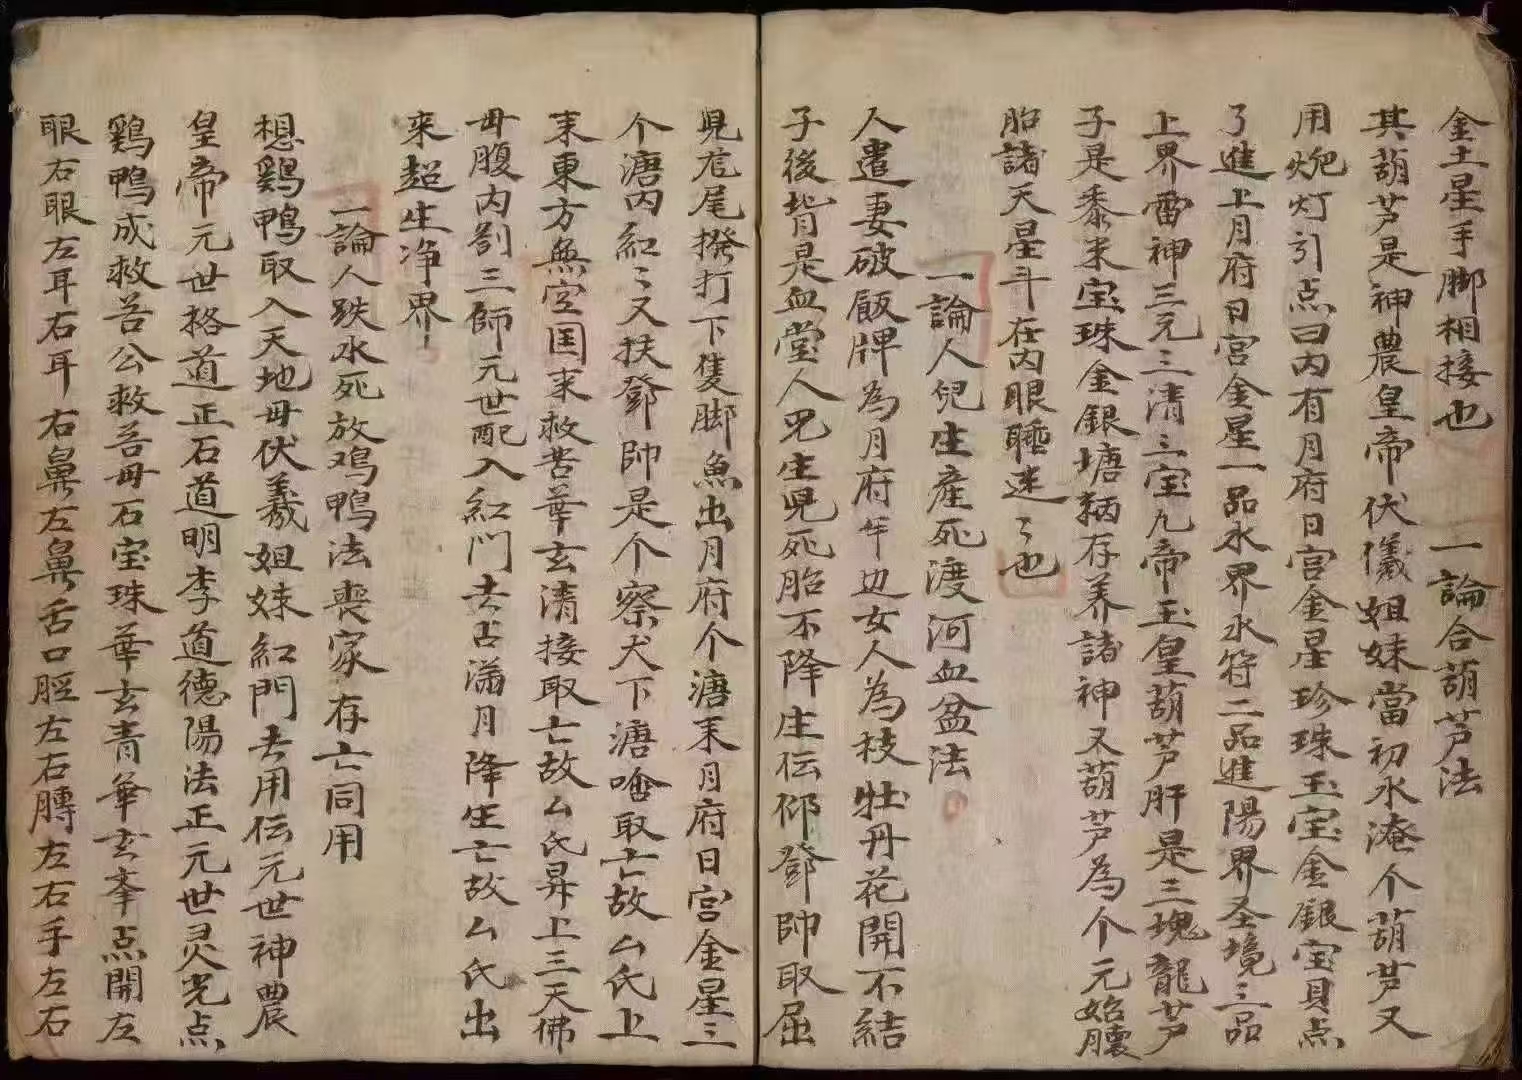 金土星手脚相接也　一論合葫芦法
其葫芦是神農皇帝伏儀姐妹當初水淹个葫芦又
用炮灯引点曰内有月府日宫金星珍珠玉宝金銀宝貝点
了進上月府日宫金星一品水界水符二品進陽界圣境三品
上界雷神三元三清三宝九帝玉皇葫芦肝是三塊龍芦
子是黍米宝珠金銀塘𫆀存养諸神又葫芦為个元始
胎諸天星斗在内眼睡迷〻也
一論人兒生產死渡河血盆法
人遣妻破飯牌為月府年边女人為枝牡丹花開不結
子後皆是血堂人兒生児死胎不降庄伝仰鄧帥取屈
児危尾撥打下隻脚魚出月府个溏来月府日宫金星三
个溏内紅〻又扶鄧帥是个察犬下溏喰取亡故厶氏上
来東方無空国来救苦華玄清接取亡故厶氏昇上三天佛
毋腹内劄三師元世配入紅门去占满月降生亡故厶氏出
来超生净界
一論人跌水死放鸡鴨法喪家存亡同用
想鷄鴨取入天地毋伏羲姐妹紅門去用伝元世神農
皇帝元世格道正石道明李道德陽法正元世灵光点
鷄鴨成救苦公救苦毋石宝珠華玄青華玄峯点開左
眼右眼左耳右耳右鼻左鼻舌口脛左右膊左右手左右